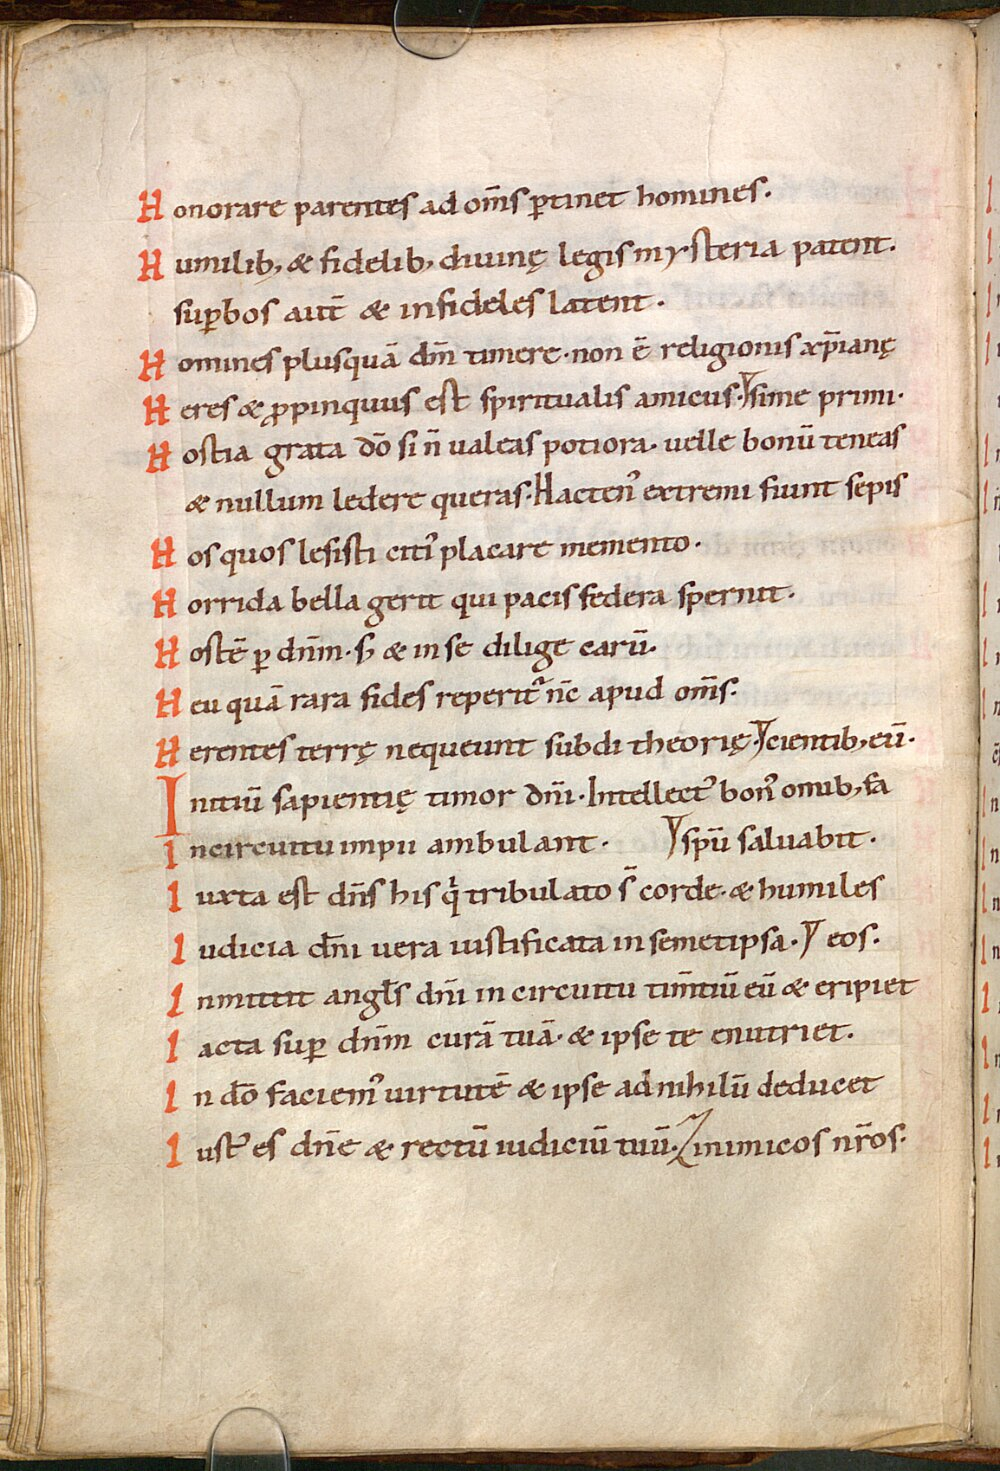 Honorare parentes ad om̄s ꝑtinet homines.
Humilib; & fidelib; diuinę legis mysteria patent.
suꝑbos aut̄ & infideles latent.
Homines plusquā dn̄m timere. non ē religionis xp̄ianę
Heres & ꝓpinquus est spiritualis amicus. sime primi.
Hostia grata dō si n̄ ualeas potiora. uelle bonū teneas
& nullum ledere queras. Hacten᾿ extremi fiunt sepis
Hos quos lesisti citi᾿ placare memento.
Horrida bella gerit qui pacis federa spernit.
Hostē ꝑ dn̄m. s; & in se dilige carū.
Heu quā rara fides reperit᾿ nc̄ apud om̄s.
Herentes terrę nequeunt subdi theorię. cientib; eū.
Initiū sapientię timor dn̄i. Intellect᾿ bon᾿ omib; fa
In circuitu impii ambulant. spū saluabit.
Iuxta est dn̄s his qͥ tribulato s̄ corde. & humiles
Iudicia dn̄i uera iustificata in semetipsa. eos.
Inmittit angl̄s dn̄i in circuitu tim̄tiū eū & eripiet
Iacta suꝑ dn̄m curā tuā. & ipse te enutriet.
In dō faciem᾿ uirtutē & ipse ad nihilū deducet
Iust᾿ es dn̄e & rectū iudiciū tuū. inimicos nr̄os.